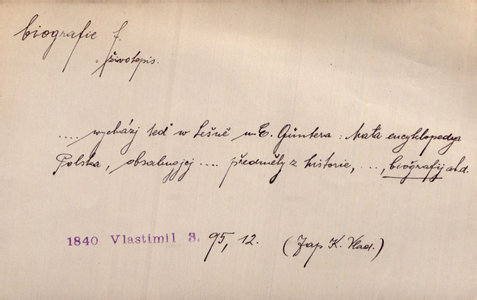 biografie f.
životopis.
.... wycházj teď w Lešně u E. Güntera: Mała encyklopedya
Polska, obsahugjcj .... předměty z historie, ..., biografij atd.
1840 Vlastimil 3. 95, 12. (Jap K. Vlad.)